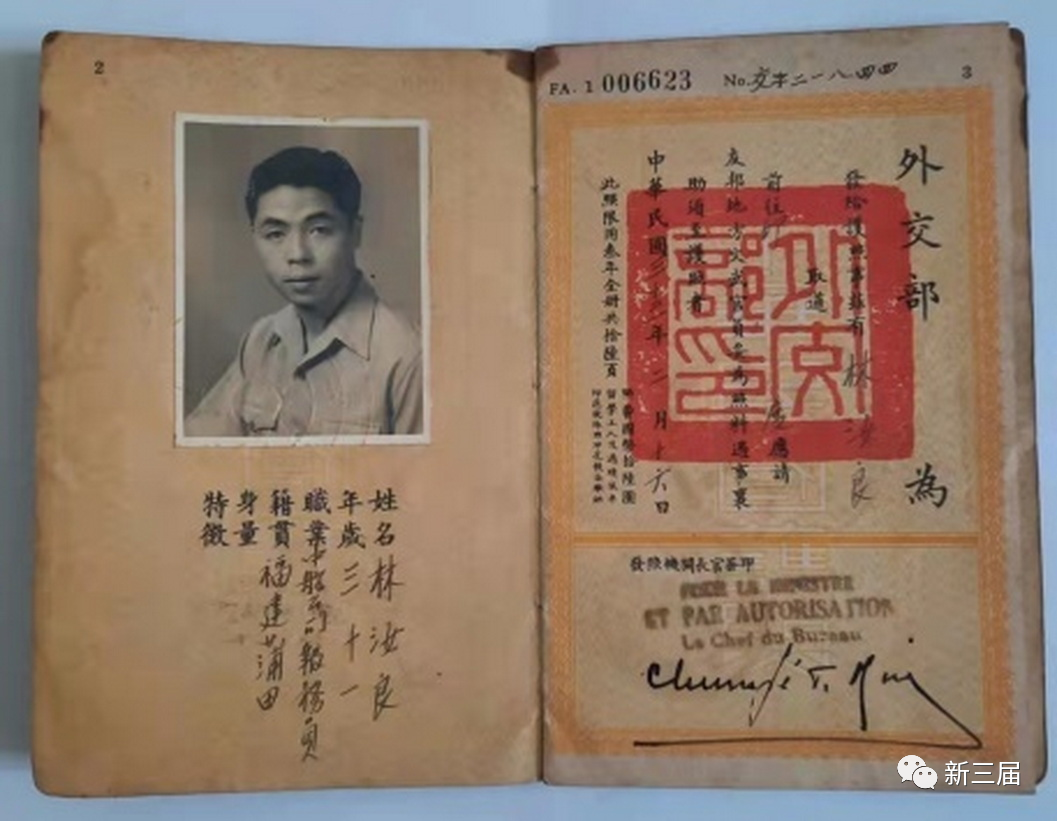 2
姓名 林汝良
年歲 三十一
職業 中航公司報務員
籍貫 福建莆田
身量
特徵
FA. 1 006623 No. 交字二一八四四 3
外交部 為
發給護照事茲有 林汝良
取道
前往 印度 應請
友邦地方文武官員妥為照料遇事襄
助須至護照者
中華民國 年 二月十六日
此照限用叁年全冊共拾陸頁
外交部印
發照機關長官簽印
POUR LE MINISTRE
ET PAR AUTORISATION
Le Chef du Bureau
新三届